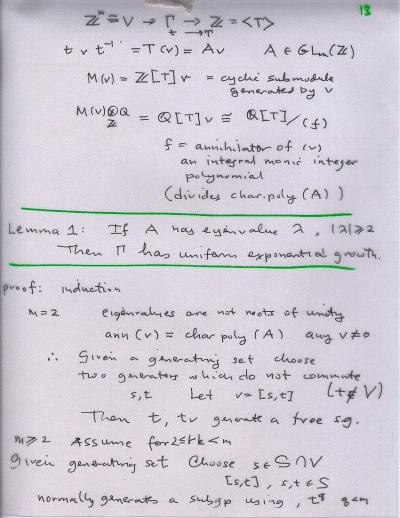 13
ℤⁿ ≅ V → Γ → ℤ = <T>
t → T
t v t⁻¹ = T(v) = Av A ∈ GLm(ℤ)
M(v) = ℤ[T]v = cyclic submodule
generated by v
M(v)⊗ℚ = ℚ[T]v ≅ ℚ[T]/(f)
ℤ
f = annihilator of (v)
an integral monic integer
polynomial
(divides char.poly (A))
Lemma 1: If A has eigenvalue λ, |λ|≥2
Then Γ has uniform exponential growth.
proof: induction
m=2 eigenvalues are not roots of unity
ann (v) = char poly (A) any v≠0
∴ Given a generating set choose
two generators which do not commute
s,t Let v=[s,t] (t∉V)
Then t, tv generate a free sg.
m≥2 Assume for 2≤ rk<m
Given generating set Choose s∈S∩V
[s,t], s,t∈S
normally generates a subgp using, t^q q<m